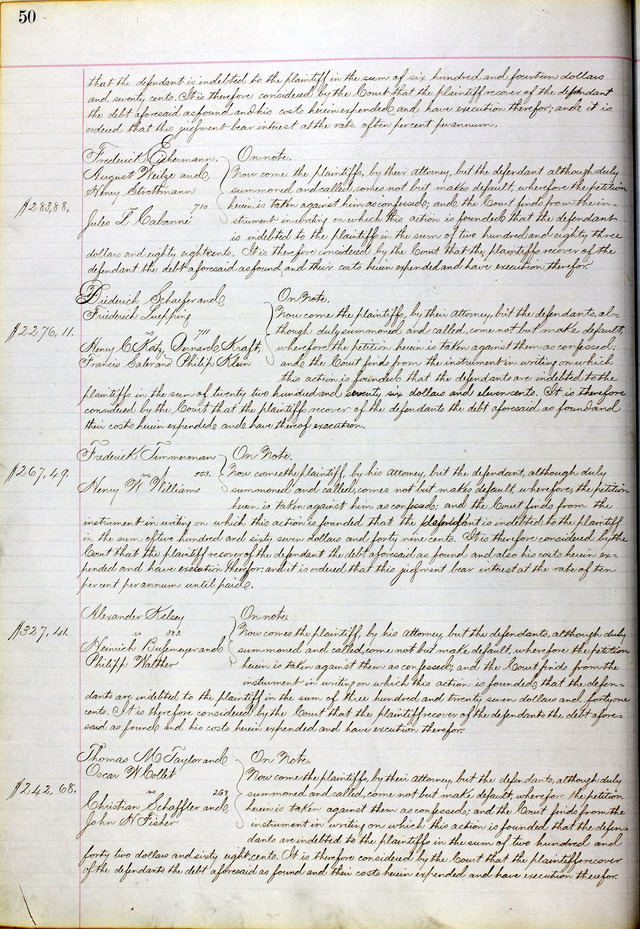 50
that the defendant is indebted to the plaintiff in the sum of six hundred and fourteen dollars
and seventy cents. It is therefore considered by the Court that the plaintiff recover of the defendant
the debt aforesaid as found and his costs herein expended and have execution therefor; and it is
ordered that the judgment bear interest at the rate of ten per cent per annum.
Frederick Eshermann. On note.
August Weilze and Now come the plaintiffs, by their Attorney, but the defendant although duly
Henry Strottmann summoned and called, comes not but makes default, wherefore the petition
$283,88. herein is taken against him as confessed; and the Court finds from the in-
Jules L Cabanné 710 strument in writing on which this action is founded that the defendant
is indebted to the plaintiffs in the sum of two hundred and eighty three
dollars and eighty eight cents. It is therefore considered by the Court that the plaintiffs recover of the
defendant the debt aforesaid as found, and their costs herein expended and have execution therefor.
Diederich Schaefer and On Note.
Friederich Luepping Now come the plaintiffs, by their Attorney, but the defendants, al-
$2276,11. vs 711 though duly summoned and called, come not but make default,
Henry C Katz, Kraft, wherefore the petition herein is taken against them as confessed;
Francis Saler and Philip Klein and the Court finds from the instrument in writing on which
this action is founded that the defendants are indebted to the
plaintiffs in the sum of twenty two hundred and seventy six dollars and eleven cents. It is therefore
considered by the Court that the plaintiffs recover of the defendants the debt aforesaid as found and
their costs herein expended and have thereof execution.
Frederick Timmerman On Note.
$267,49. vs 753. Now comes the plaintiff, by his attorney, but the defendant, although duly
Henry W Williams summoned and called, comes not but makes default, wherefore, the petition
herein is taken against him as confessed; and the Court finds from the
instrument in writing on which this action is founded that the defendant is indebted to the plaintiff
in the sum of two hundred and sixty seven dollars and forty nine cents. It is therefore considered by the
Court that the plaintiff recover of the defendant the debt aforesaid as found and also his costs herein ex-
pended and have execution therefor: and it is ordered that this judgment bear interest at the rate of ten
per cent per annum until paid.
Alexander Kelsey On note.
$327,41. vs 393 Now comes the plaintiff, by his attorney, but the defendants, although duly
Heinrich Busemeyer and summoned and called, come not but make default, wherefore the petition
Philipp Walther herein is taken against them as confessed; and the Court finds from the
instrument in writing on which this action is founded, that the defen-
dants are indebted to the plaintiff in the sum of three hundred and twenty seven dollars and forty one
cents. It is therefore considered by the Court that the plaintiff recover of the defendants the debt afore-
said as found and his costs herein expended and have execution therefor.
Thomas M Taylor and On Note.
Oscar W Collet Now come the plaintiffs, by their attorney, but the defendants, although duly
$242,68. vs 269 summoned and called, come not but make default, wherefore the petition
Christian Schaffler and herein is taken against them as confessed; and the Court finds from the
John H Fisher instrument in writing on which this action is founded that the defen-
dants are indebted to the plaintiffs in the sum of two hundred and
forty two dollars and sixty eight cents. It is therefore considered by the Court that the plaintiffs recover
of the defendants the debt aforesaid as found and their costs herein expended and have execution therefor.